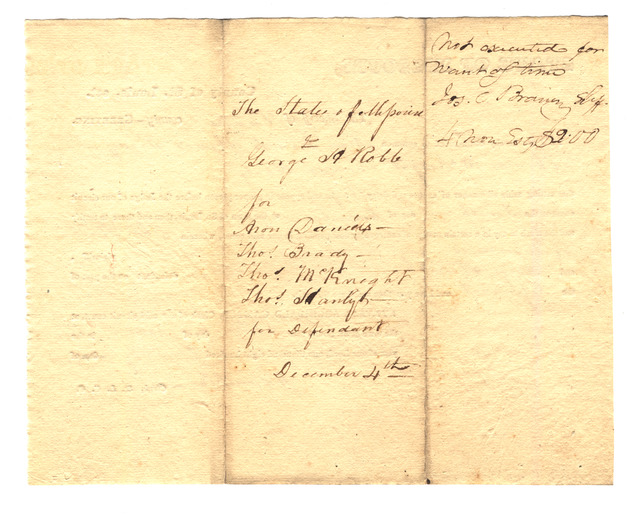 The State of Missouri
vs
George H Robb
for
Aron Daniels
Thos. Brady
Thos. McKnight
Thos.
for Defendant
December 4th
Not executed for
want of time
Jos. C Brown Shff.
4 Non Est $2.00